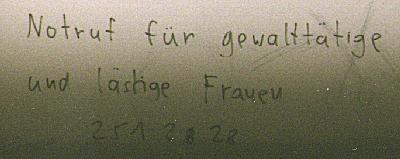 Notruf für gewalttätige
und lästige Frauen
251 28 28